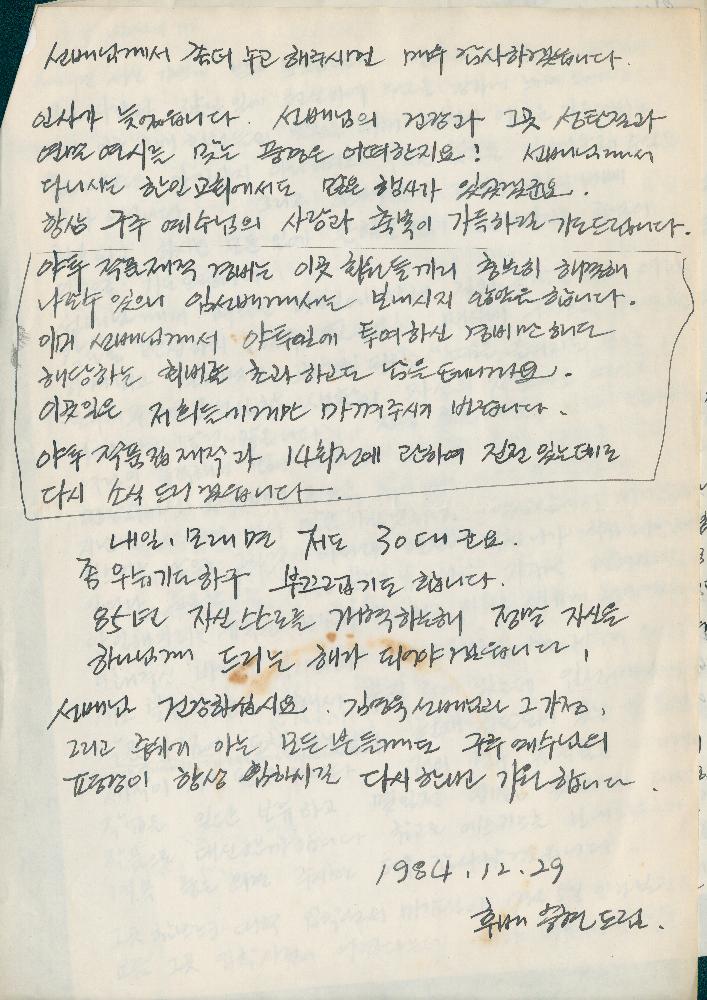 선배님께서 좀더 수고 해주시면 매우 감사하겠습니다.
인사가 늦었읍니다. 선배님의 건강과 그곳 성탄절과
연말 연시를 맞는 풍경은 어떠한지요! 선배님께서
다니시는 한인교회에서도 많은 행사가 있겠군요.
항상 구주 예수님의 사랑과 축복이 가득하길 기도드립니다.
야투 작품제작 경비는 이곳 회원들끼리 충분히 해결해
나갈수 있으니 임선배께서는 보내시지 않았으면 합니다.
이미 선배님께서 야투일에 투여하신 경비만 해도
해당하는 회비를 초과하고도 남을테니까요.
이곳일은 저희들에게만 맡겨주시기 바랍니다.
야투 작품집제작과 14회전에 관하여 진전 있는데로
다시 소식 드리겠읍니다.
내일, 모래면 저도 30대군요.
좀 우습기도하구 부끄럽기도 합니다.
85년 자신 스스로를 개혁하는해 정말 자신을
하나님께 드리는 해가 되어야겠읍니다.
선배님 건강하십시요. 김영욱선배님과 그가정,
그리고 주위의 아는 모든분들께도 구주예수님의
평강이 항상 함하시길 다시한번 기원합니다.
1984.12.29
후배 드림.